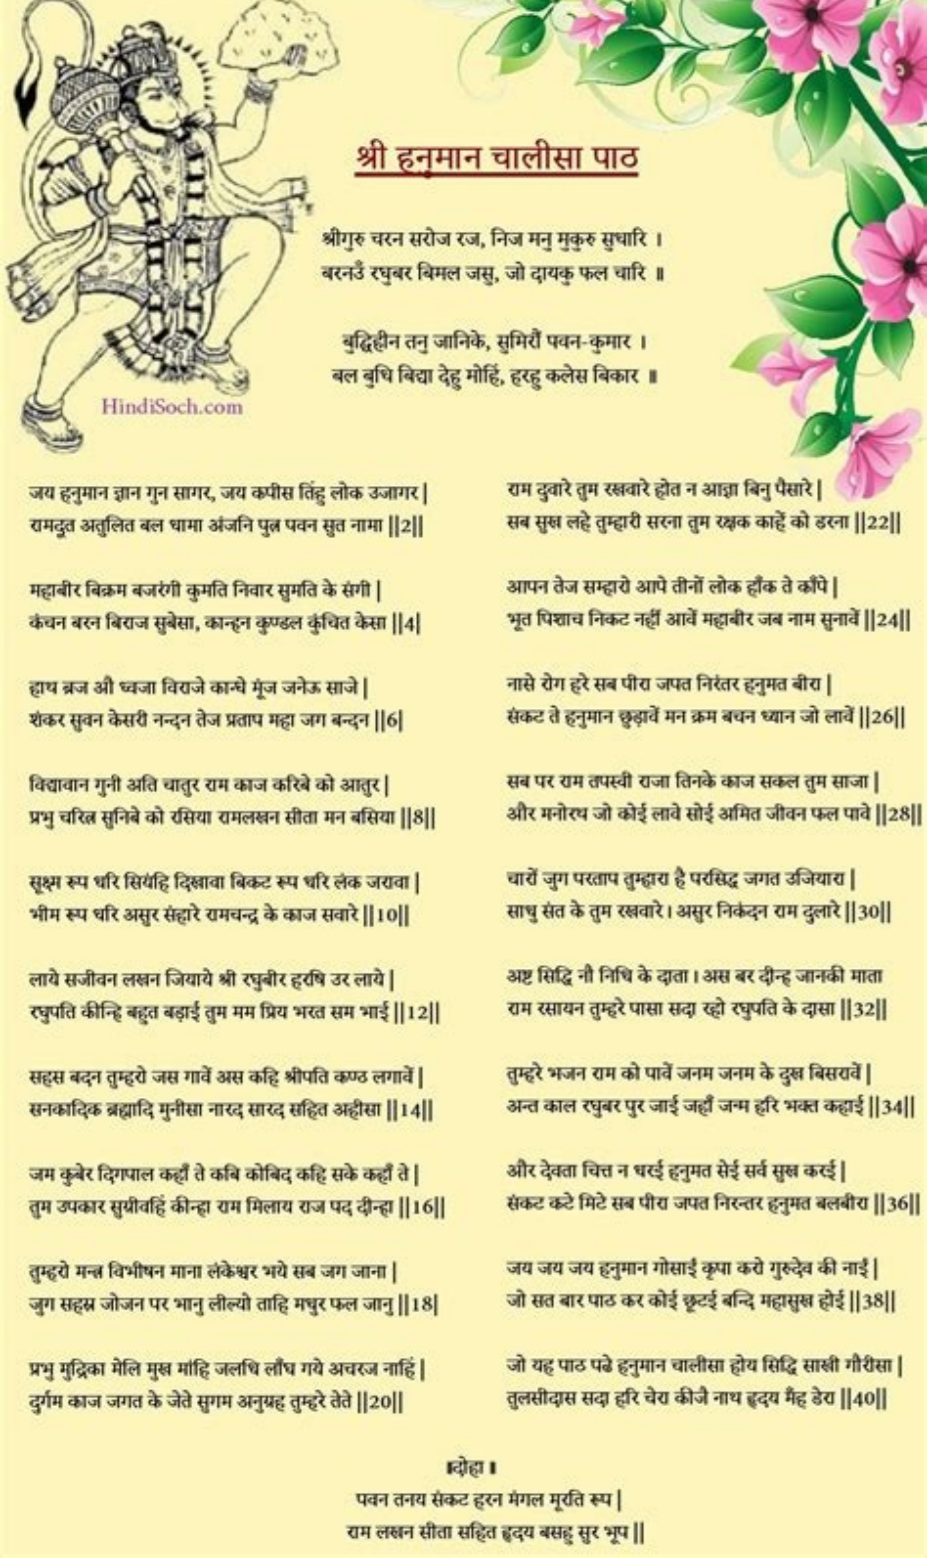 श्री हनुमान चालीसा पाठ
श्रीगुरु चरन सरोज रज, निज मनु मुकुरु सुधारि ।
बरनउँ रघुबर बिमल जसु, जो दायकु फल चारि ॥
बुद्धिहीन तनु जानिके, सुमिरौं पवन-कुमार ।
बल बुधि बिद्या देहु मोहिं, हरहु कलेस बिकार ॥
HindiSoch.com
जय हनुमान ज्ञान गुन सागर, जय कपीस तिंहु लोक उजागर|
रामदूत अतुलित बल धामा अंजनि पुत्र पवन सुत नामा ||2||
महाबीर बिक्रम बजरंगी कुमति निवार सुमति के संगी |
कंचन बरन बिराज सुबेसा, कान्हन कुण्डल कुंचित केसा ||4|
हाथ ब्रज औ ध्वजा विराजे कान्धे मूंज जनेऊ साजे |
शंकर सुवन केसरी नन्दन तेज प्रताप महा जग बन्दन ||6|
विद्यावान गुनी अति चातुर राम काज करिबे को आतुर |
प्रभु चरित्र सुनिबे को रसिया रामलखन सीता मन बसिया ||8||
सूक्ष्म रूप धरि सियंहि दिखावा बिकट रूप धरि लंक जरावा |
भीम रूप धरि असुर संहारे रामचन्द्र के काज सवारे ||10||
लाये सजीवन लखन जियाये श्री रघुबीर हरषि उर लाये |
रघुपति कीन्हि बहुत बड़ाई तुम मम प्रिय भरत सम भाई ||12||
सहस बदन तुम्हरो जस गावें अस कहि श्रीपति कण्ठ लगावें |
सनकादिक ब्रह्मादि मुनीसा नारद सारद सहित अहीसा ||14||
जम कुबेर दिगपाल कहाँ ते कबि कोबिद कहि सके कहाँ ते |
तुम उपकार सुग्रीवहिं कीन्हा राम मिलाय राज पद दीन्हा ||16||
तुम्हरो मन्त्र विभीषन माना लंकेश्वर भये सब जग जाना |
जुग सहस्र जोजन पर भानु लील्यो ताहि मधुर फल जानु ||18|
प्रभु मुद्रिका मेलि मुख मांहि जलधि लाँघ गये अचरज नाहिं |
दुर्गम काज जगत के जेते सुगम अनुग्रह तुम्हरे तेते ||20||
राम दुवारे तुम रखवारे होत न आज्ञा बिनु पैसारे |
सब सुख लहे तुम्हारी सरना तुम रक्षक काहें को डरना ||22||
आपन तेज सम्हारो आपे तीनों लोक हाँक ते काँपे |
भूत पिशाच निकट नहीं आवें महाबीर जब नाम सुनावें ||24||
नासे रोग हरे सब पीरा जपत निरंतर हनुमत बीरा |
संकट ते हनुमान छुड़ावें मन क्रम बचन ध्यान जो लावें ||26||
सब पर राम तपस्वी राजा तिनके काज सकल तुम साजा |
और मनोरथ जो कोई लावे सोई अमित जीवन फल पावे ||28||
चारों जुग परताप तुम्हारा है परसिद्ध जगत उजियारा |
साधु संत के तुम रखवारे। असुर निकंदन राम दुलारे ||30||
अष्ट सिद्धि नौ निधि के दाता। अस बर दीन्ह जानकी माता
राम रसायन तुम्हरे पासा सदा रहो रघुपति के दासा ||32||
तुम्हरे भजन राम को पावें जनम जनम के दुख बिसरावें |
अन्त काल रघुबर पुर जाई जहाँ जन्म हरि भक्त कहाई ||34||
और देवता चित्त न धरई हनुमत सेई सर्व सुख करई |
संकट कटे मिटे सब पीरा जपत निरन्तर हनुमत बलबीरा ||36||
जय जय जय हनुमान गोसाईं कृपा करो गुरुदेव की नाईं |
जो सत बार पाठ कर कोई छूटई बन्दि महासुख होई ||38||
जो यह पाठ पढे हनुमान चालीसा होय सिद्धि साखी गौरीसा |
तुलसीदास सदा हरि चेरा कीजै नाथ हृदय मँह डेरा ||40||
॥दोहा॥
पवन तनय संकट हरन मंगल मूरति रूप |
राम लखन सीता सहित हृदय बसहु सुर भूप ||